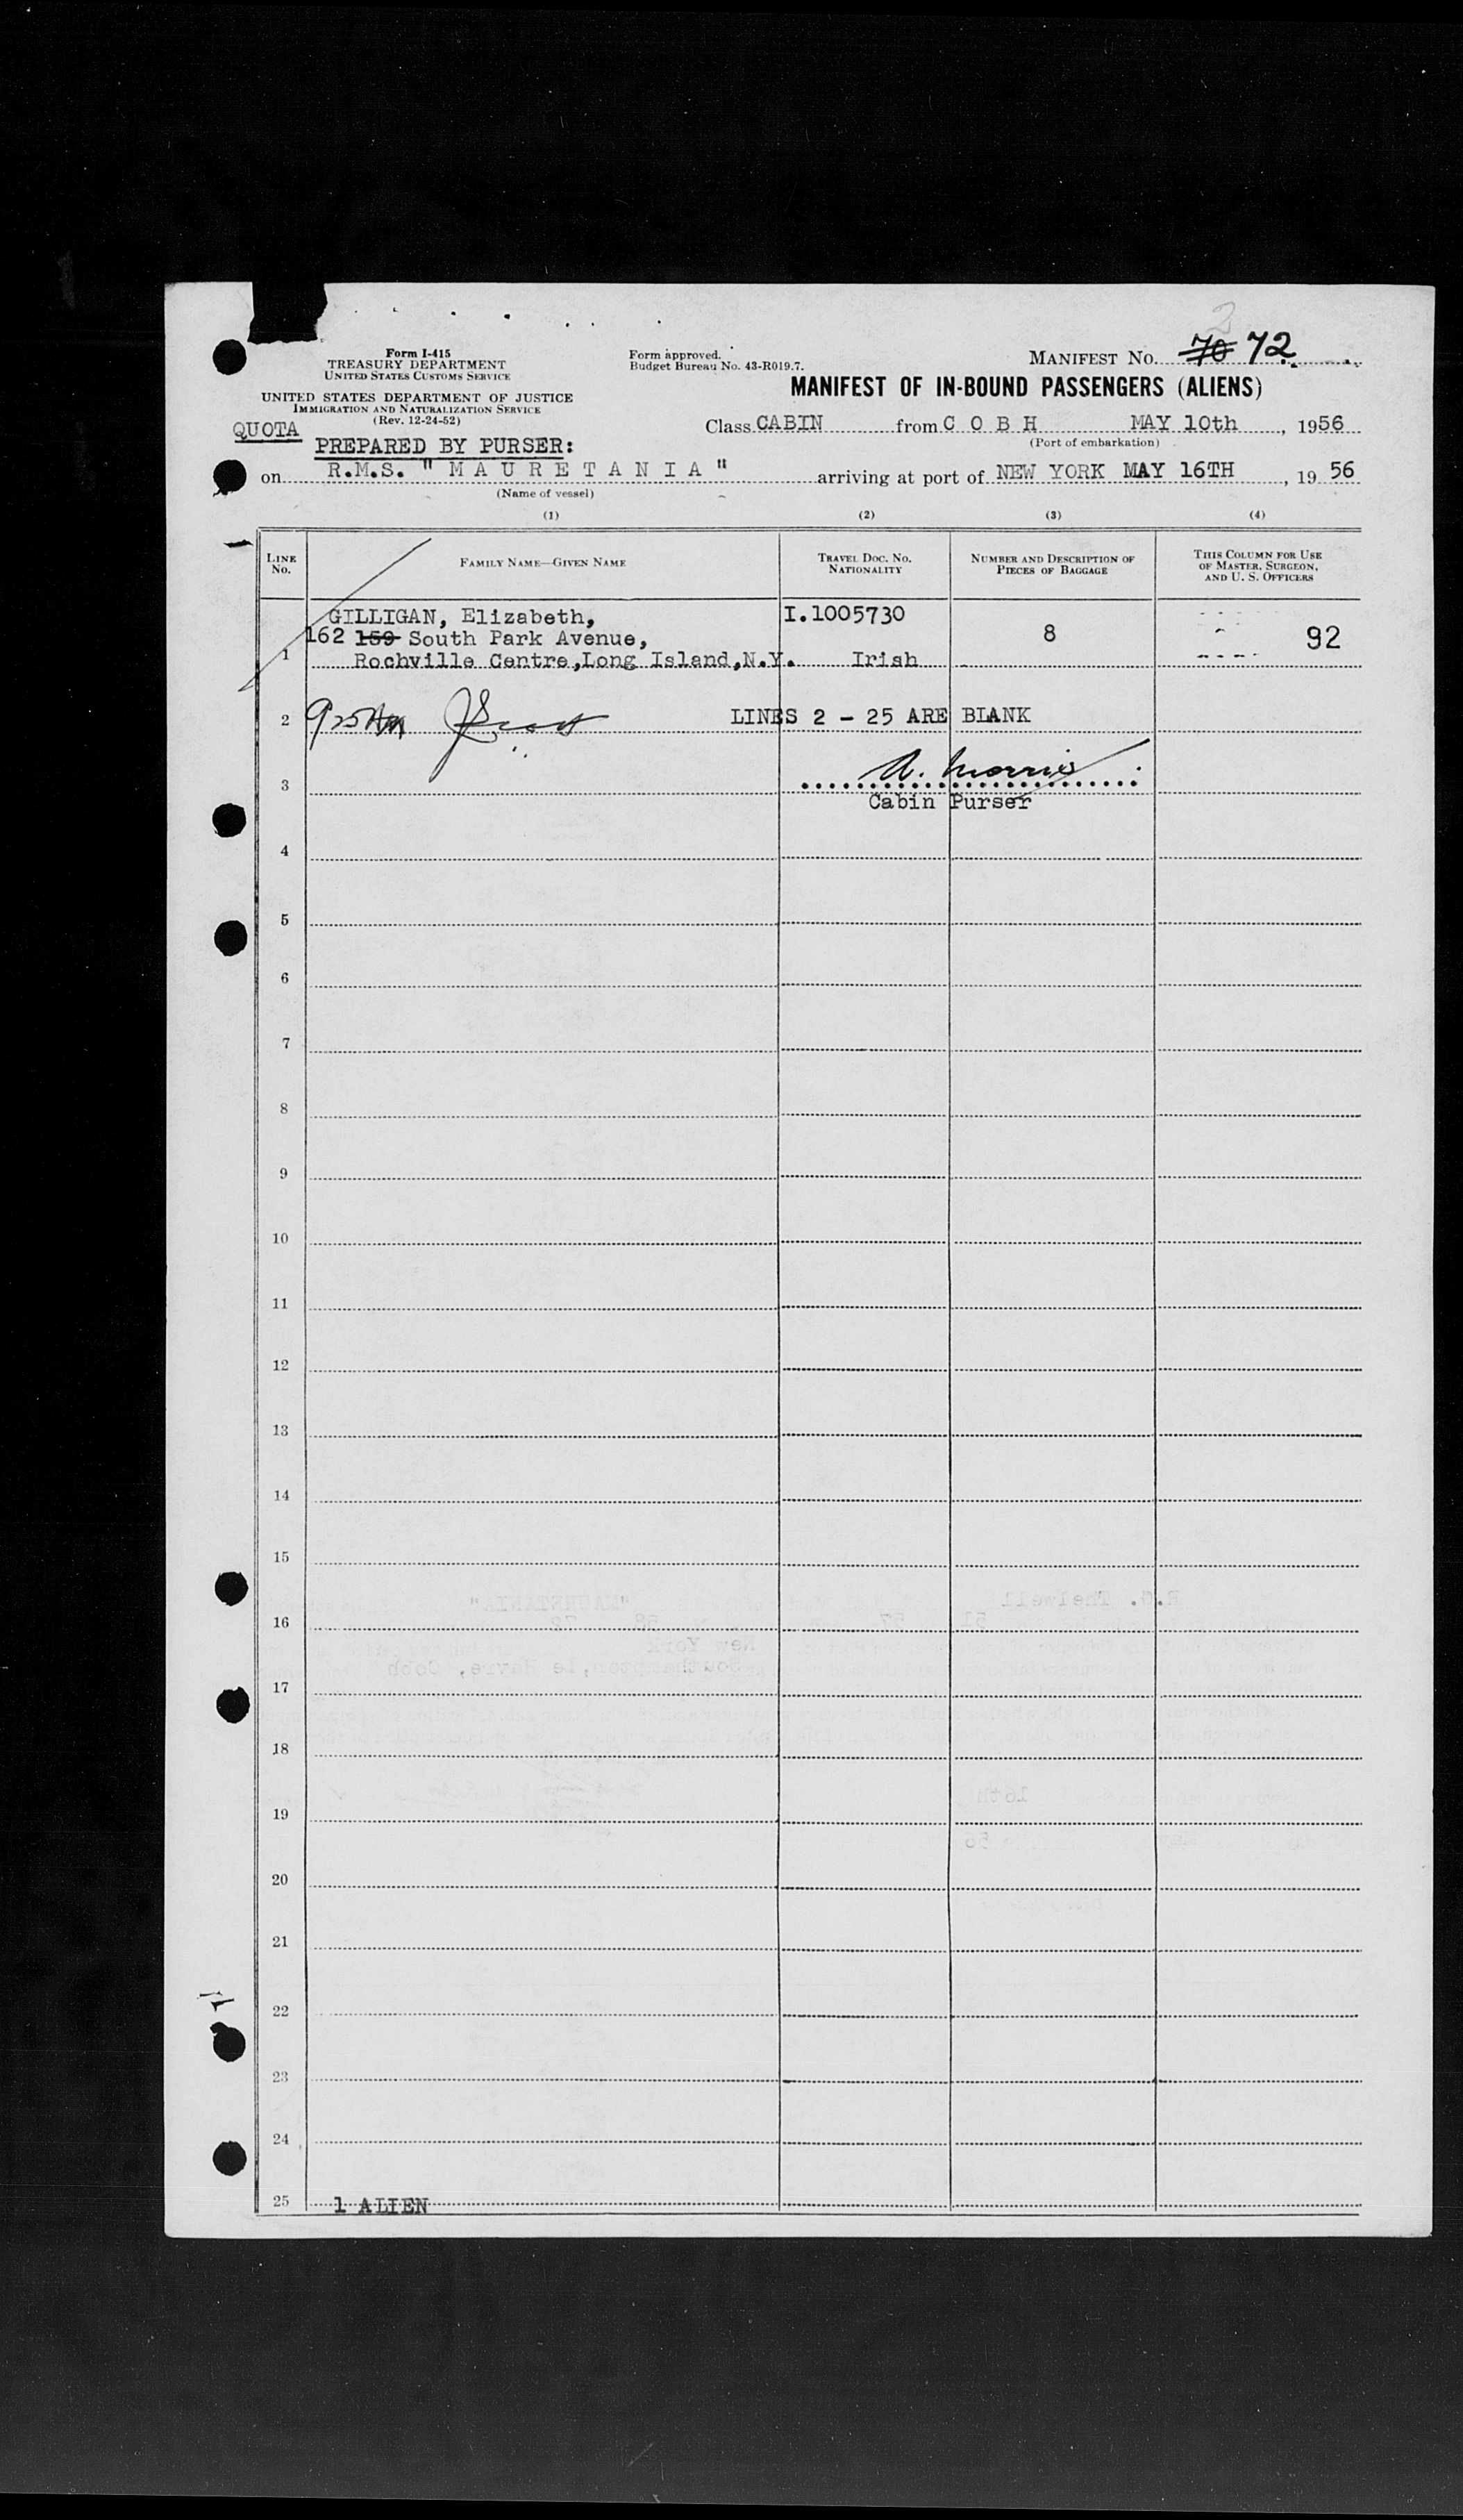 Form I-415
TREASURY DEPARTMENT
UNITED STATES CUSTOMS SERVICE
UNITED STATES DEPARTMENT OF JUSTICE
IMMIGRATION AND NATURALIZATION SERVICE
(Rev. 12-24-52)
Form approved.
Budget Bureau No. 43-R019.7.
MANIFEST No. 70 72
2
MANIFEST OF IN-BOUND PASSENGERS (ALIENS)
QUOTA
PREPARED BY PURSER:
Class CABIN from C O B H MAY 10th, 1956
(Port of embarkation)
on R.M.S. "M A U R E T A N I A" arriving at port of NEW YORK MAY 16TH, 19 56
(Name of vessel)
(1) (2) (3) (4)
LINE No. FAMILY NAME—GIVEN NAME TRAVEL DOC. NO. NATIONALITY NUMBER AND DESCRIPTION OF PIECES OF BAGGAGE THIS COLUMN FOR USE OF MASTER, SURGEON, AND U. S. OFFICERS
GILLIGAN, Elizabeth, I.1005730
162 159 South Park Avenue, 8 92
1 Rochville Centre,Long Island,N.Y. Irish
2 LINES 2 - 25 ARE BLANK
A. Morris
3
Cabin Purser
4
5
6
7
8
9
10
11
12
13
14
15
R.G. Thelwell
"MAURETANIA"
16
New York
Southampton, Le Havre, Cobh
17
18
16th
19
20
21
22
23
24
25 1 ALIEN